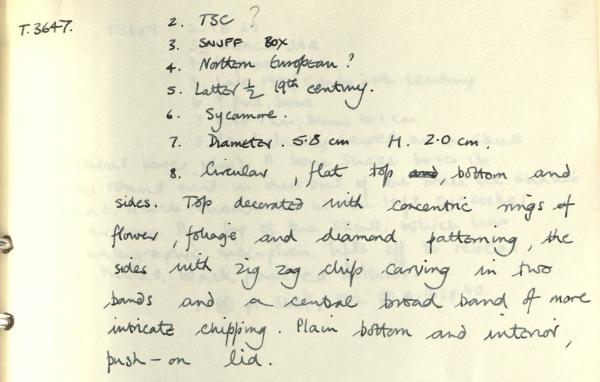 T.3647.
2. TSC ?
3. SNUFF BOX
4. Northern European ?
5. Latter ½ 19th century.
6. Sycamore.
7. Diameter. 5.8 cm H. 2.0 cm.
8. Circular, flat top and, bottom and
sides. Top decorated with concentric rings of
flower, foliage and diamond patterning, the
sides with zig zag chip carving in two
bands and a central broad band of more
intricate chipping. Plain bottom and interior,
push-on lid.